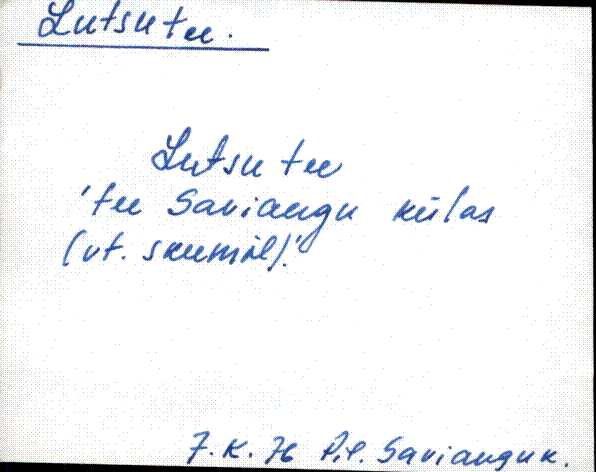 Lutsu tee.
Lutsu tee
'tee Saviaugu külas
(vt. skeemil).'
J. K. 76 Pil. Saviauguk.